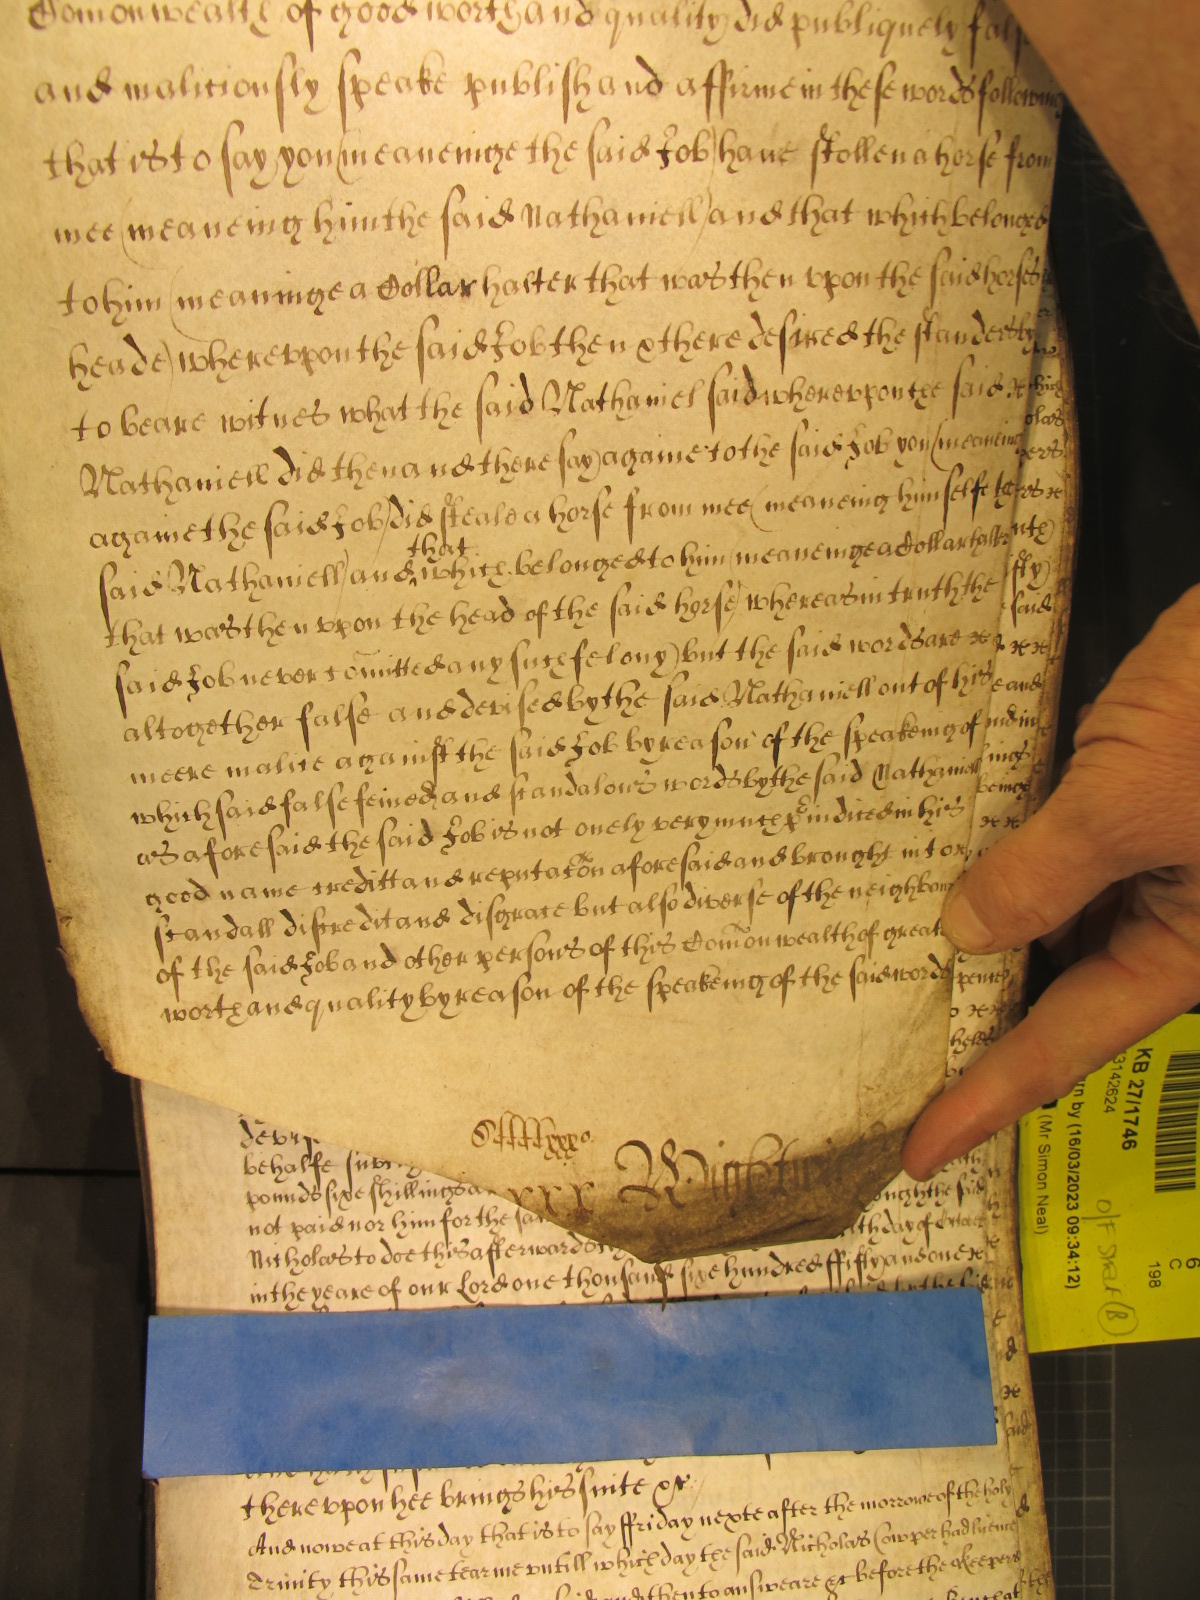 Comonwealth of good worth and quality did publiquely
and malitiously speake publish and affirme in these words following
that is to say you (meaneinge the said Job) have stollen a horse from
mee (meaneing him the said Nathaniell) and that which belonged
to him (meaninge a Collar halter that was then vpon the said horses
heade) wherevpon the said Job then & there desired the standersby
to beare witnes what the said Nathaniel said wherevpon the said
Nathaniell did then and there say againe to the said Job you (meaneing
againe the said Job) did steale a horse from mee (meaneing himselfe the
that
said Nathaniell) and which belonged to him (meaneinge a Collar halter
that was then vpon the head of the said horse) whereas in truth the
said Job never comitted any such felony) but the said words are
altogether false and devised by the said Nathaniell out of his
meere malice against the said Job by reason of the speakeing of
which said false feined and scandalous words by the said Nathaniell
as aforesaid the said Job is not onely very much preiudiced in his
good name creditt and reputacon aforesaid and brought into
scandall discredit and disgrace but also diverse of the neighbours
of the said Job and other persons of this Comonwealth of great
worth and quality by reason of the speakeing of the said words
xxx
behalfe
pounds sixe shillings
not paid nor him for the
Nicholas to doe this afterwards
in the yeare of our Lord one thousand sixe hundred ffifty and one
there vpon hee brings his suite &c
And nowe at this day that is to say ffriday nexte after the morrowe of the holy
Trinity this same tearme vntill which day the said Nicholas Cowper had licence
and then to answeare &c before the Keepers
KB 27/1746
13142624
by (16/03/2023 09:34:12)
(Mr Simon Neal)
6
C
198
O/F Shelf (B)